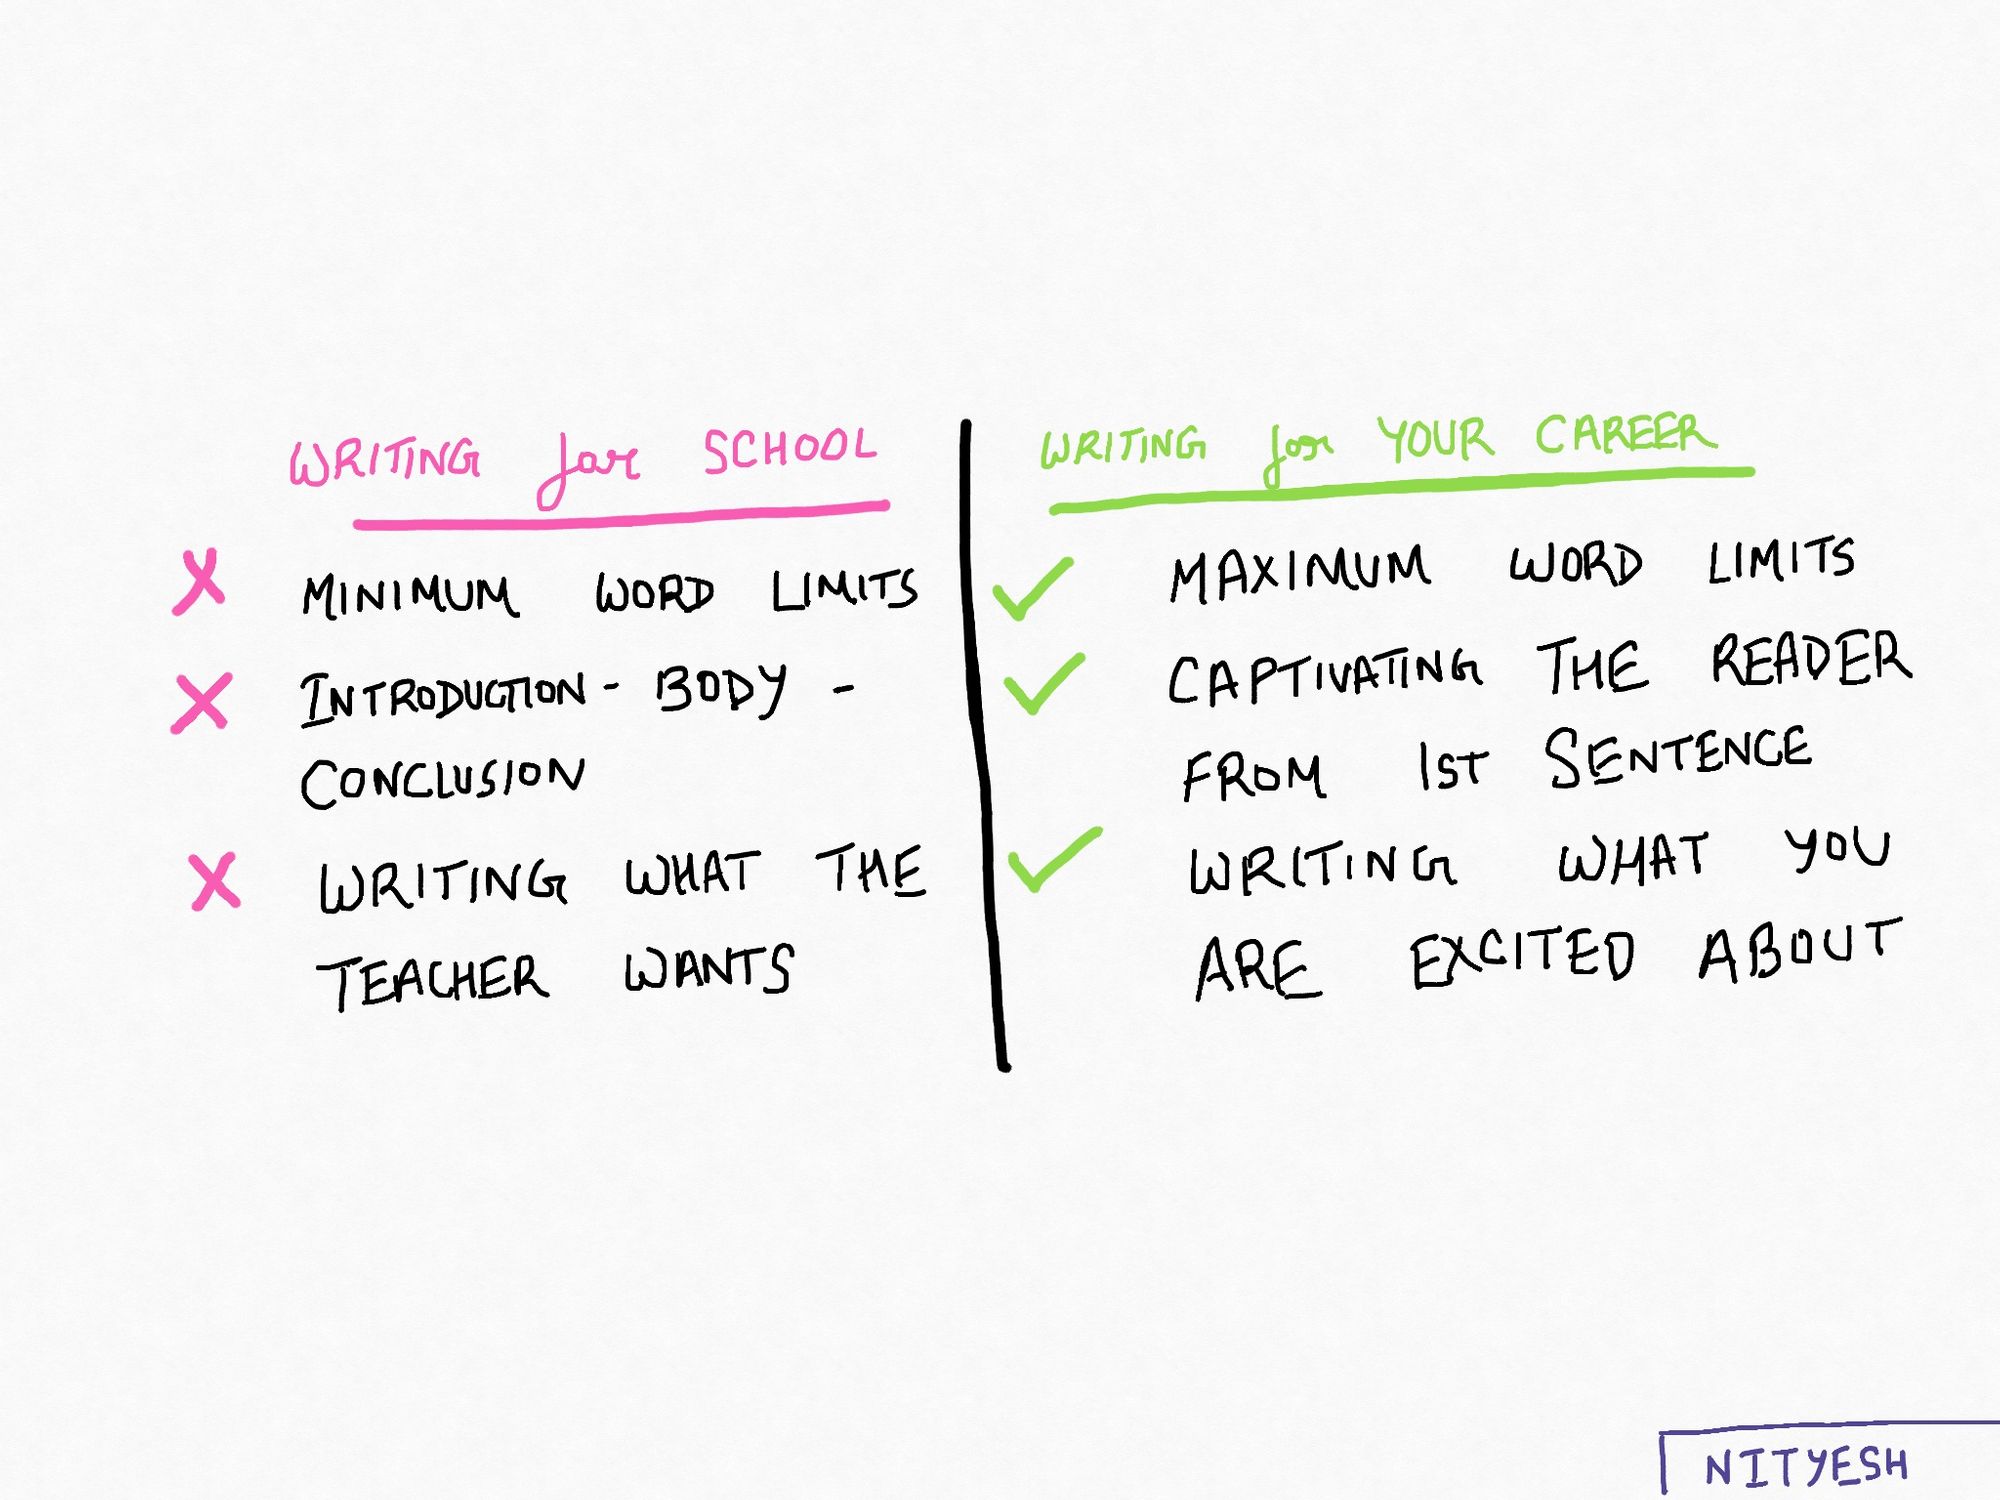 WRITING for SCHOOL
✗ MINIMUM WORD LIMITS
✗ INTRODUCTION - BODY -
CONCLUSION
✗ WRITING WHAT THE
TEACHER WANTS
WRITING for YOUR CAREER
✓ MAXIMUM WORD LIMITS
✓ CAPTIVATING THE READER
FROM 1ST SENTENCE
✓ WRITING WHAT YOU
ARE EXCITED ABOUT
NITYESH